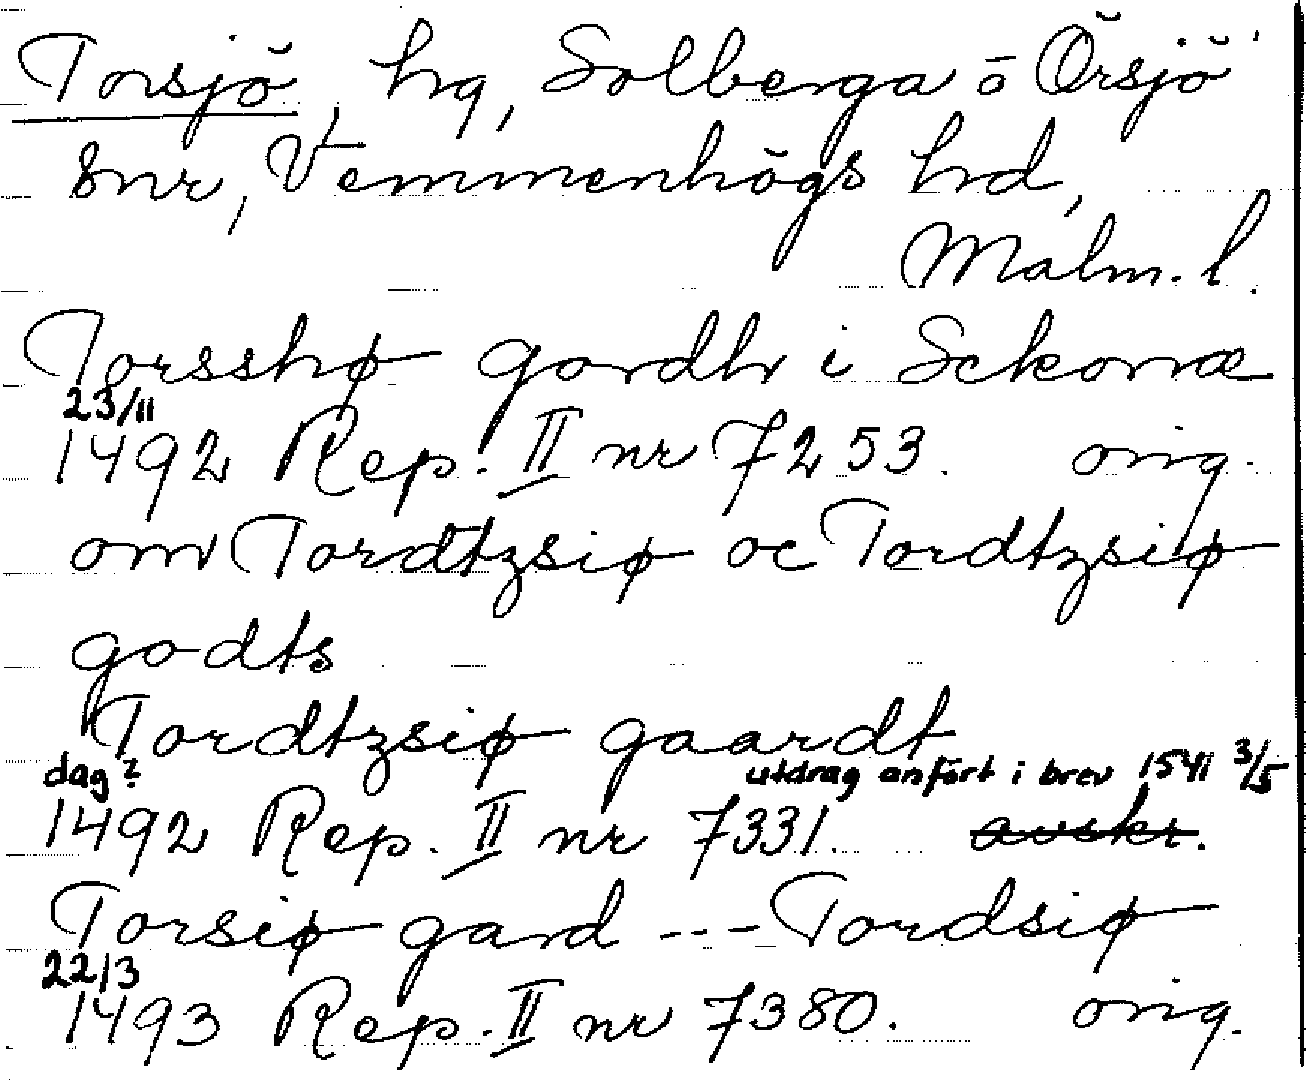 Torsjö, hg, Solberga o Örsjö
snr, Vemmenhögs hd,
Malm. l.
Torsshø gardh i Sckonæ
23/11
1492 Rep. II nr 7253. orig.
om Tordtzsiø oc Tordtzsiø
godts
Tordtzsiø gaardt
dag? utdrag anfört i brev 1541 3/5
1492 Rep. II nr 7331. avskr.
Torsiø gard --- Tordsiø
22/3
1493 Rep. II nr 7380. orig.